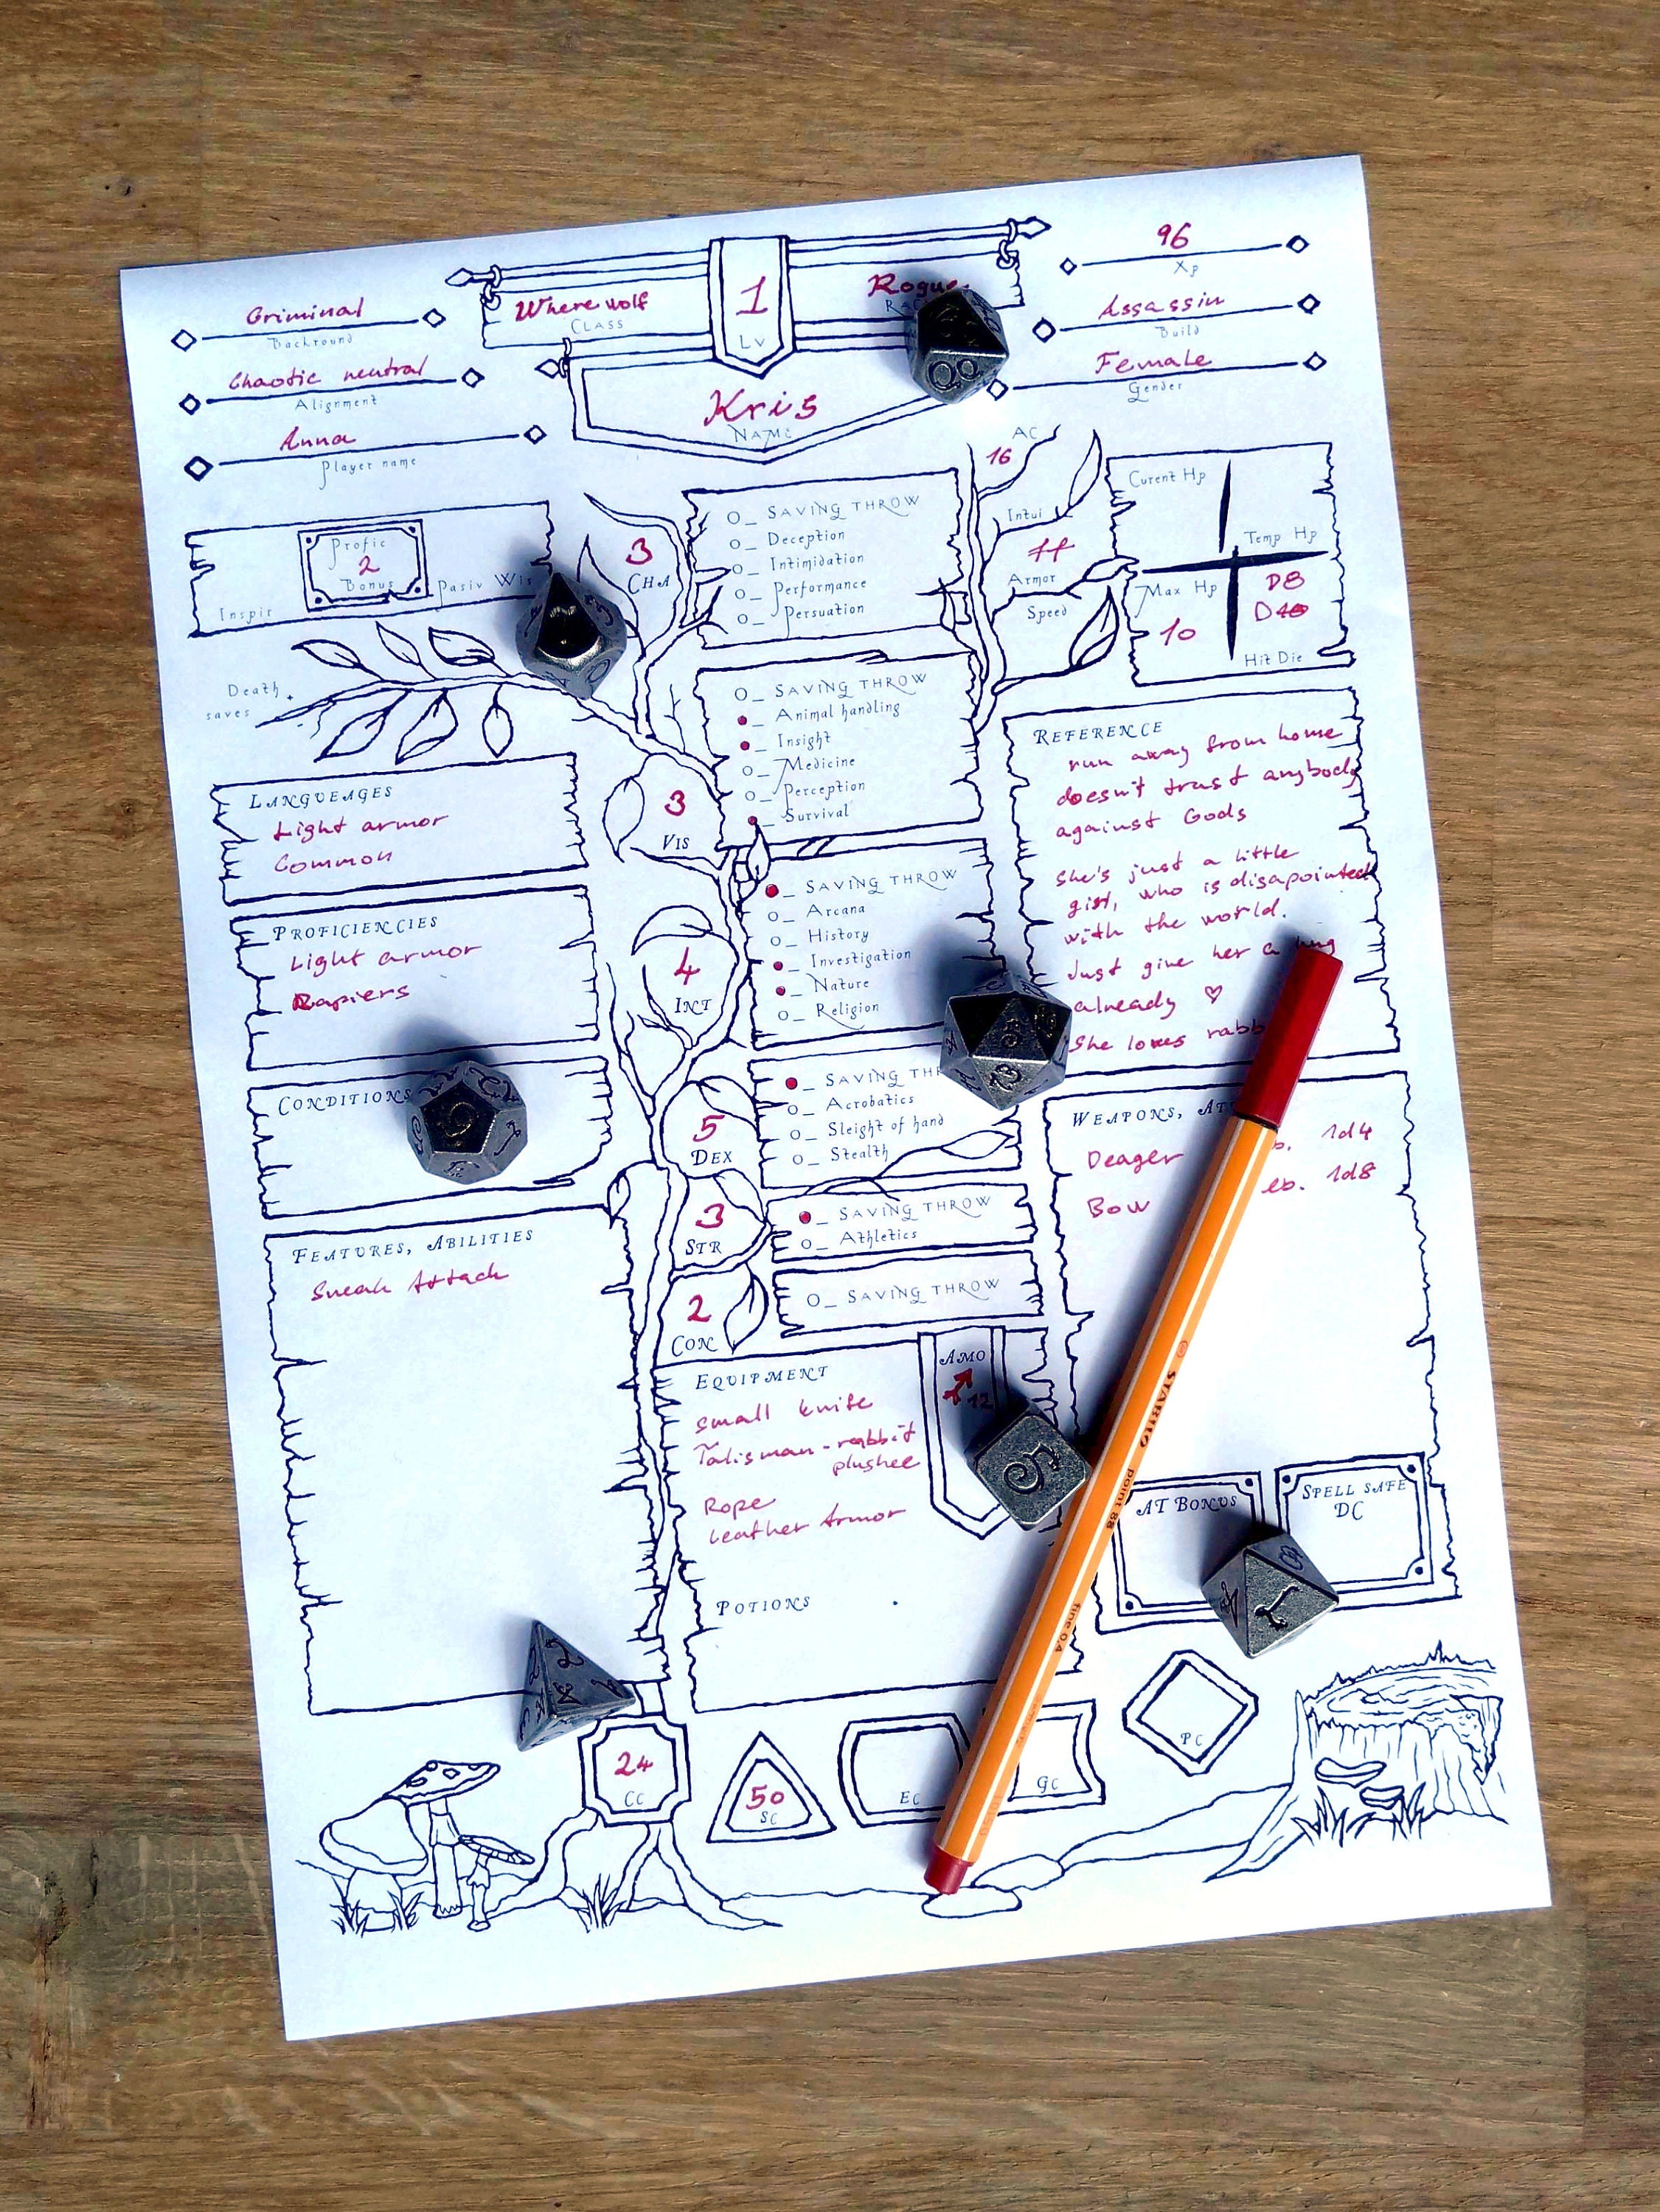 96
Xp
Where wolf
CLASS
1
LV
Rogue
Griminal
Backround
Assassin
Build
Chaotic neutral
Alignment
Kris
NAME
Female
Gender
Anna
Player name
AC
16
Intui
Armor
Speed
Curent Hp
Temp Hp
Max Hp
10
D8
Hit Die
Profic
2
Bonus
Pasiv Wis
Inspir
Death
saves
3
CHA
O_ SAVING THROW
O_ Deception
O_ Intimidation
O_ Performance
O_ Persuation
3
VIS
O_ SAVING THROW
_ Animal handling
_ Insight
O_ Medicine
O_ Perception
_ Survival
LANGUEAGES
Light armor
Common
REFERENCE
run away from home
doesn't trust anybody
against Gods
she's just a little
girl, who is disapointed
with the world.
Just give her a hug
already ♡
She loves
PROFICIENCIES
Light armor
Rapiers
4
INT
_ SAVING THROW
O_ Arcana
O_ History
_ Investigation
_ Nature
O_ Religion
CONDITIONS
5
DEX
_ SAVING
O_ Acrobatics
O_ Sleight of hand
O_ Stealth
WEAPONS,
Deager 1d4
Bow 1d8
3
STR
_ SAVING THROW
O_ Athletics
2
CON
O_ SAVING THROW
FEATURES, ABILITIES
Sneak Attack
EQUIPMENT
small knife
Talisman - rabbit
plushee
Rope
Leather Armor
AMO
12
POTIONS
AT BONUS
SPELL SAFE
DC
© STABILO point 88 fine 0,4
24
CC
50
SC
EC
GC
PC